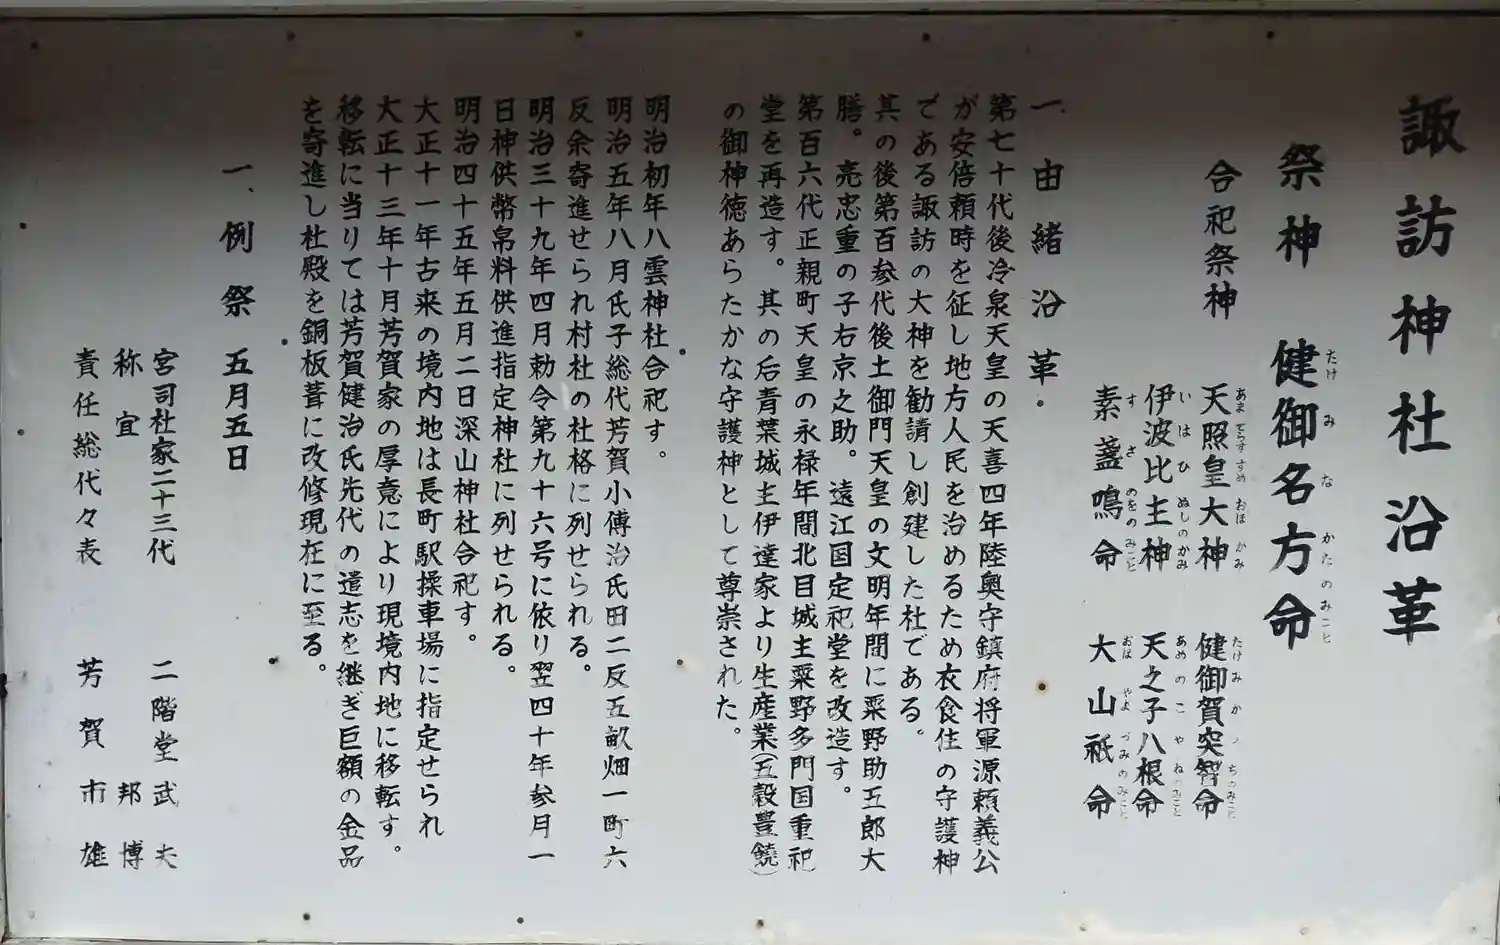 諏訪神社沿革
祭神 健御名方命
たけ み な かた の みこと
合祀祭神 天照皇大神 健御賀突智命
伊波比主神 天之子八根命
いはひぬしのかみ あめのこやねのみこと
素盞鳴命 大山祇命
すさのをのみこと
一、由緒沿革・
第七十代後冷泉天皇の天喜四年陸奥守鎮府将軍源頼義公
が安倍頼時を征し地方人民を治めるため衣食住の守護神
である諏訪の大神を勧請し創建した社である。
其の後第百参代後土御門天皇の文明年間に粟野助五郎大
膳。亮忠重の子右京之助。遠江国定祀堂を改造す。
第百六代正親町天皇の永禄年間北目城主粟野多門国重祀
堂を再造す。其の后青葉城主伊達家より生産業(五穀豊饒)
の御神徳あらたかな守護神として尊崇された。
明治初年八雲神社合祀す。
明治五年八月氏子総代芳賀小傅治氏田二反五畝畑一町六
反余寄進せられ村社の社格に列せられる。
明治三十九年四月勅令第九十六号に依り翌四十年参月一
日神供幣帛料供進指定神社に列せられる。
明治四十五年五月二日深山神社合祀す。
大正十一年古来の境内地は長町駅操車場に指定せられ
大正十三年十月芳賀家の厚意により現境内地に移転す。
移転に当りては芳賀健治氏先代の遺志を継ぎ巨額の金品
を寄進し社殿を銅板葺に改修現在に至る。
一、例祭 五月五日
宮司社家二十三代 二階堂武夫
称宜 邦博
責任総代々表 芳賀市雄